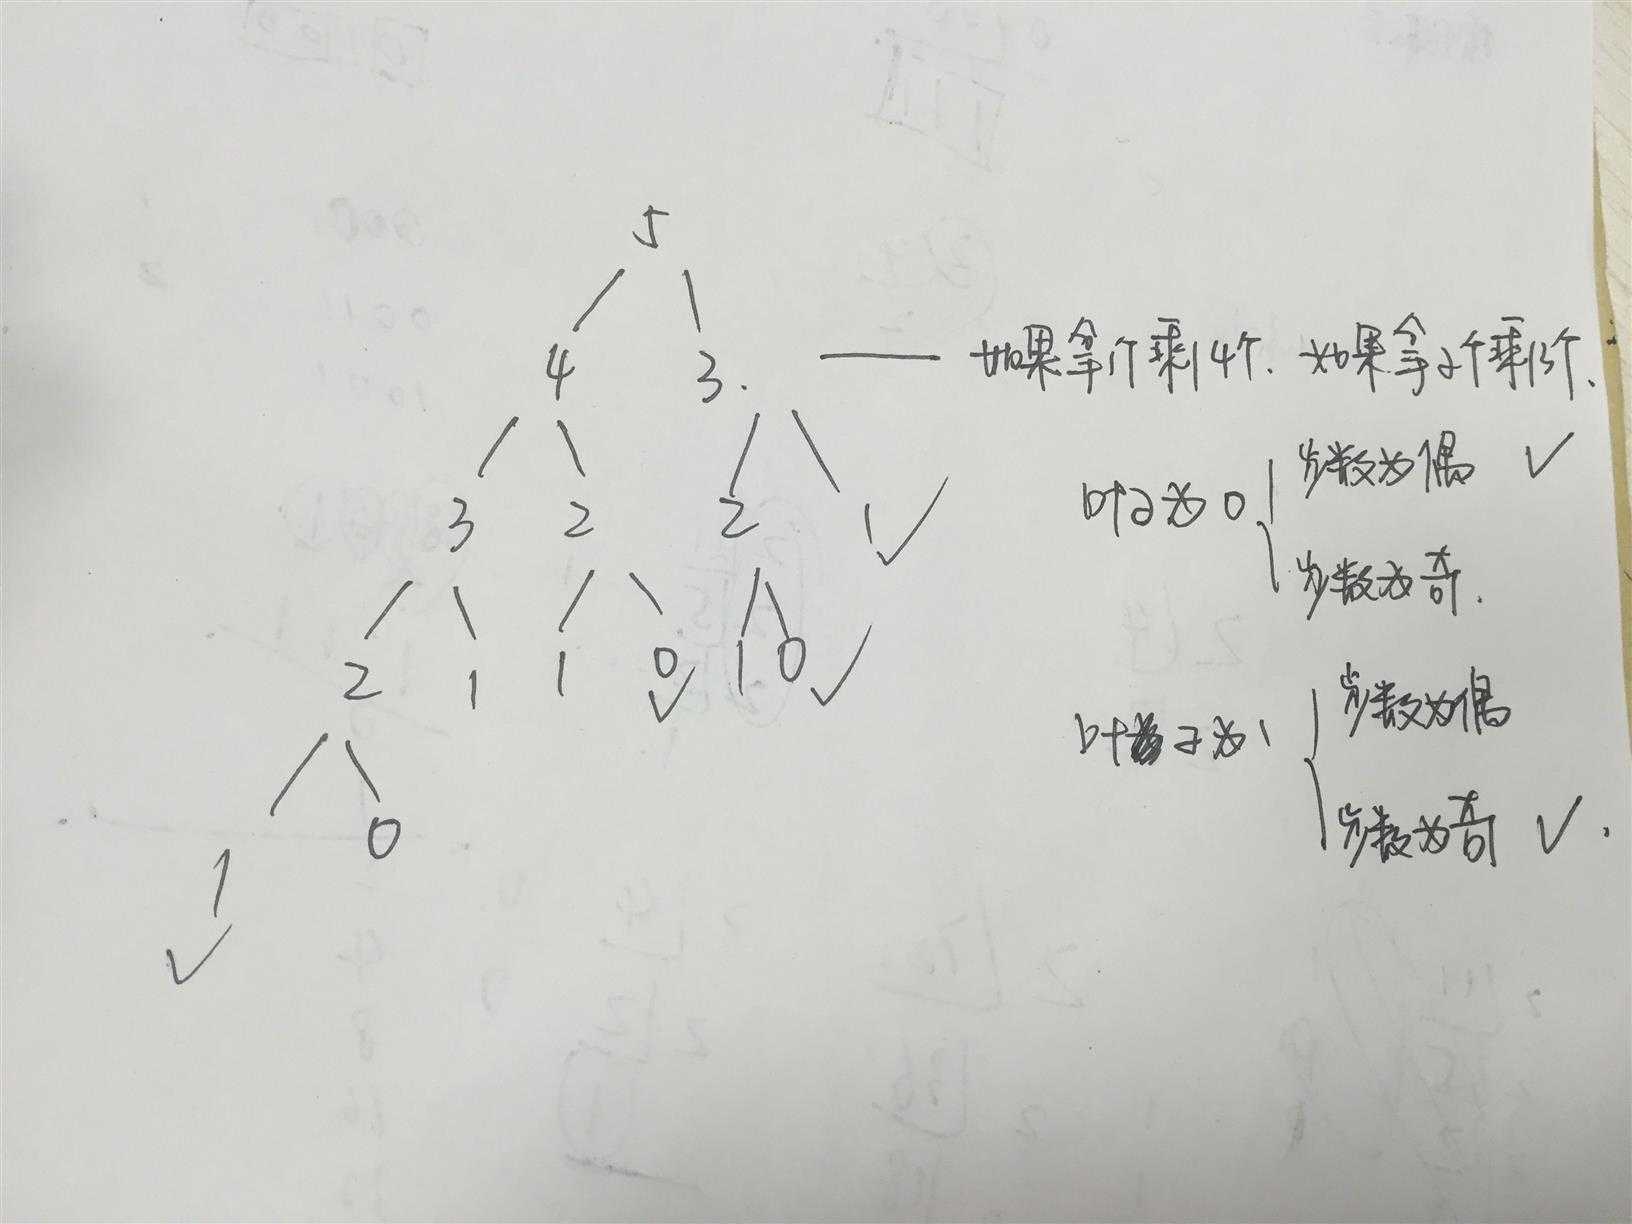 5
4 3. 如果拿1个剩4个. 如果拿2个剩3个.
3 2 2 1 ✓
叶子为0 步数为偶 ✓
步数为奇.
2 1 1 0 ✓ 1 0 ✓
叶子为1 步数为偶
步数为奇 ✓.
1 ✓ 0